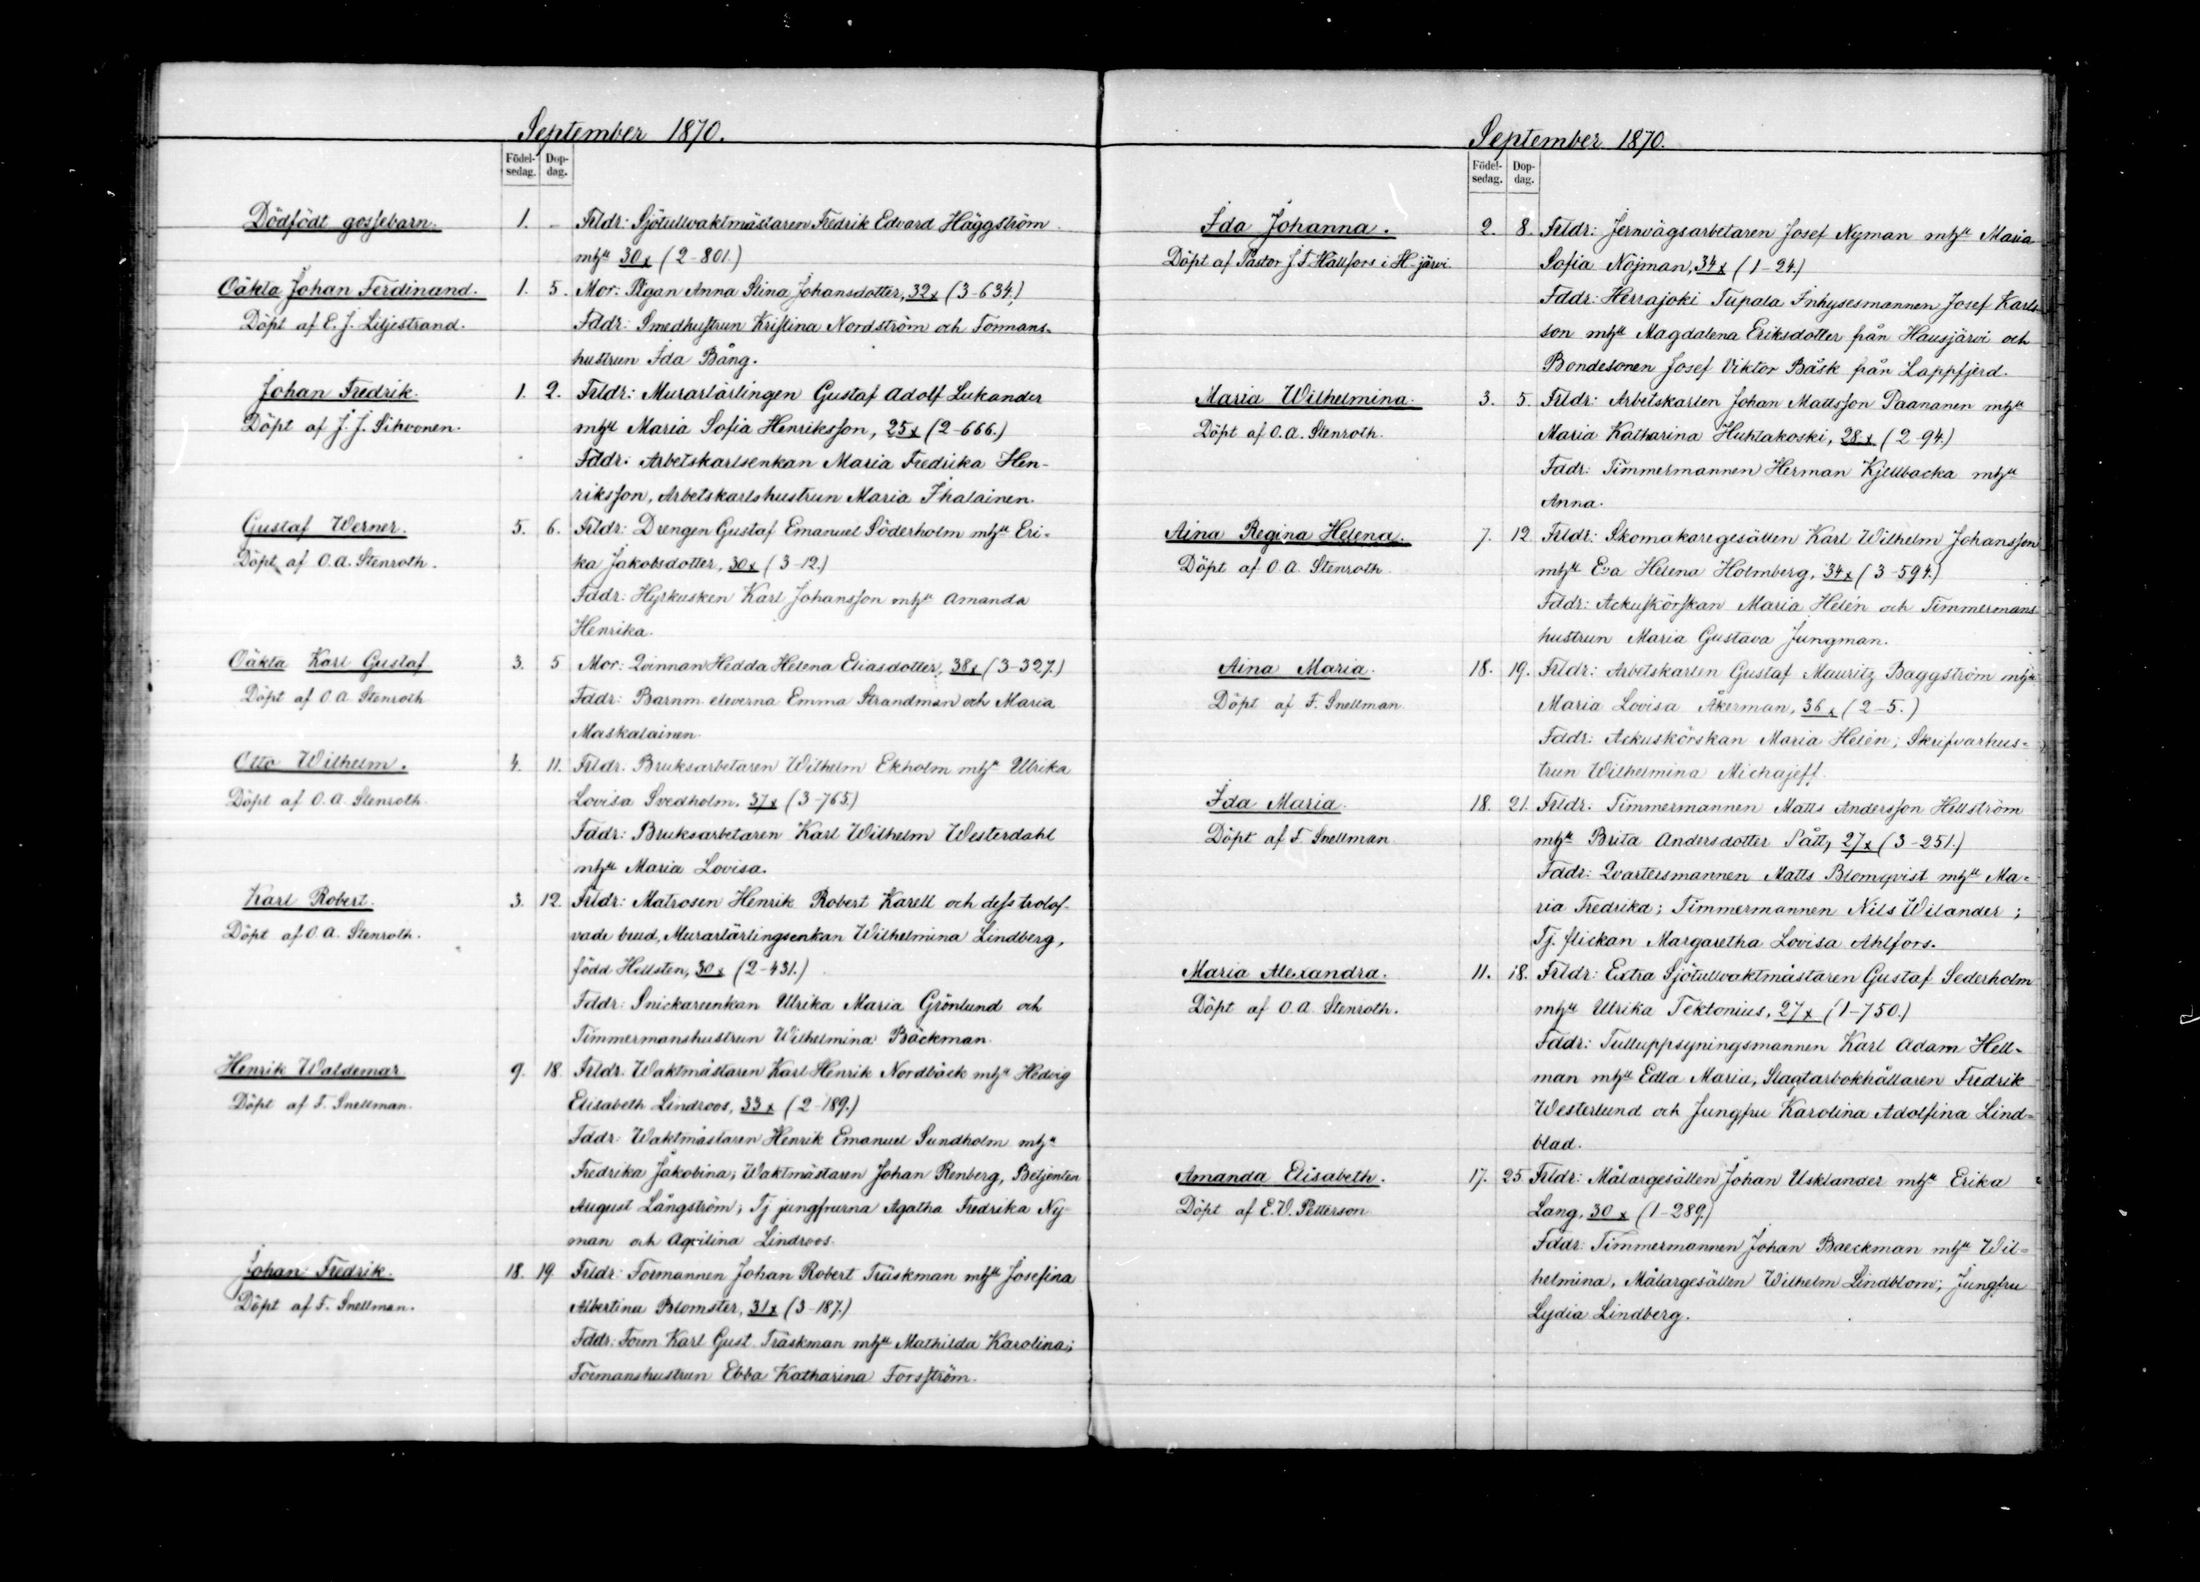 September 1870.
Födel- Dop-
sedag. dag.
Dödfödt gossebarn. 1. – Frldr: Sjötullvaktmästaren Fredrik Edvard Häggström
mhu 30x (2-801.)
Oäkta Johan Ferdinand. 1. 5. Mor: Pigan Anna Stina Johansdotter, 32x (3-634.)
Döpt af E. J. Liljestrand. Fddr: Smedhustrun Kristina Nordström och Formans-
hustrun Ida Bång.
Johan Fredrik. 1. 2. Frldr: Murarlärlingen Gustaf Adolf Lukander
Döpt af J. J. Sihvonen. mhu Maria Sofia Henriksson, 25x (2-666.)
Fddr: Arbetskarlsenkan Maria Fredrika Hen-
riksson, Arbetskarlshustrun Maria Ihalainen.
Gustaf Werner. 5. 6. Frldr: Drengen Gustaf Emanuel Söderholm mhu Eri-
Döpt af O. A. Stenroth. ka Jakobsdotter, 30x (3-12.)
Fddr: Hyrkusken Karl Johansson mhu Amanda
Henrika.
Oäkta Karl Gustaf 3. 5 Mor: Qvinnan Hedda Helena Eliasdotter, 38x (3-327.)
Döpt af O. A. Stenroth Fddr: Barnm. eleverna Emma Strandman och Maria
Maskalainen.
Otto Wilhelm. 4. 11. Frldr. Bruksarbetaren Wilhelm Ekholm mhu Ulrika
Döpt af O. A. Stenroth. Lovisa Svedholm, 37x (3-765.)
Fddr: Bruksarbetaren Karl Wilhelm Westerdahl
mhu Maria Lovisa.
Karl Robert. 3. 12. Frldr: Matrosen Henrik Robert Karell och dess trolof-
Döpt af O. A. Stenroth. vade brud, Murarlärlingsenkan Wilhelmina Lindberg,
född Hellsten, 30x (2-431.)
Fddr: Snickareenkan Ulrika Maria Grönlund och
Timmermanshustrun Wilhelmina Bäckman.
Henrik Waldemar 9. 18. Frldr. Waktmästaren Karl Henrik Nordbäck mhu Hedvig
Döpt af F. Snellman. Elisabeth Lindroos, 33x (2-189.)
Fddr: Waktmästaren Henrik Emanuel Sundholm mhu
Fredrika Jakobina; Waktmästaren Johan Renberg, Betjenten
August Långström; Tj jungfrurna Agatha Fredrika Ny-
man och Aqvilina Lindroos.
Johan Fredrik. 18. 19 Frldr: Formannen Johan Robert Träskman mhu Josefina
Döpt af F. Snellman. Albertina Blomster, 31x (3-187.)
Fddr: Form Karl Gust. Träskman mhu Mathilda Karolina;
Formanshustrun Ebba Katharina Forsström.
September 1870.
Födel- Dop-
sedag. dag.
Ida Johanna. 2. 8. Frldr: Jernvägsarbetaren Josef Nyman mhu Maria
Döpt af Pastor J. F. Hällfors i H-järvi. Sofia Nöjman, 34x (1-24.)
Fddr: Herrajoki Tupala Inhysesmannen Josef Karls-
son mhu Magdalena Eriksdotter från Hausjärvi och
Bondesonen Josef Viktor Båsk från Lappfjerd.
Maria Wilhelmina. 3. 5. Frldr: Arbetskarlen Johan Mattsson Paananen mhu
Döpt af O. A. Stenroth. Maria Katharina Huhtakoski, 28x (2-94.)
Fddr: Timmermannen Herman Kjellbacka mhu
Anna.
Aina Regina Helena. 7. 12 Frldr: Skomakaregesällen Karl Wilhelm Johansson
Döpt af O. A. Stenroth. mhu Eva Helena Holmberg, 34x (3-594.)
Fddr: Ackuskörskan Maria Helén och Timmermans
hustrun Maria Gustava Jungman.
Aina Maria. 18. 19. Frldr: Arbetskarlen Gustaf Mauritz Baggström mhu
Döpt af F. Snellman. Maria Lovisa Åkerman, 36x (2-5.)
Fddr: Ackuskörskan Maria Helén; Skrifvarhus-
trun Wilhelmina Michajeff.
Ida Maria. 18. 21. Frldr: Timmermannen Matts Andersson Hellström
Döpt af F. Snellman mhu Brita Andersdotter Pått, 27x (3-251.)
Fddr: Qvartersmannen Matts Blomqvist mhu Ma-
ria Fredrika; Timmermannen Nils Wilander;
Tj. flickan Margaretha Lovisa Ahlfors.
Maria Alexandra. 11. 18. Frldr: Extra Sjötullvaktmästaren Gustaf Sederholm
Döpt af O. A. Stenroth. mhu Ulrika Tektonius, 27x (1-750.)
Fddr: Tulluppsyningsmannen Karl Adam Hell-
man mhu Edla Maria, Slagtarbokhållaren Fredrik
Westerlund och Jungfru Karolina Adolfina Lind-
blad.
Amanda Elisabeth. 17. 25 Frldr: Målargesällen Johan Usklander mhu Erika
Döpt af E. V. Petterson. Lang, 30x (1-289.)
Fddr: Timmermannen Johan Baeckman mhu Wil-
helmina, Målargesällen Wilhelm Lindblom; Jungfru
Lydia Lindberg.